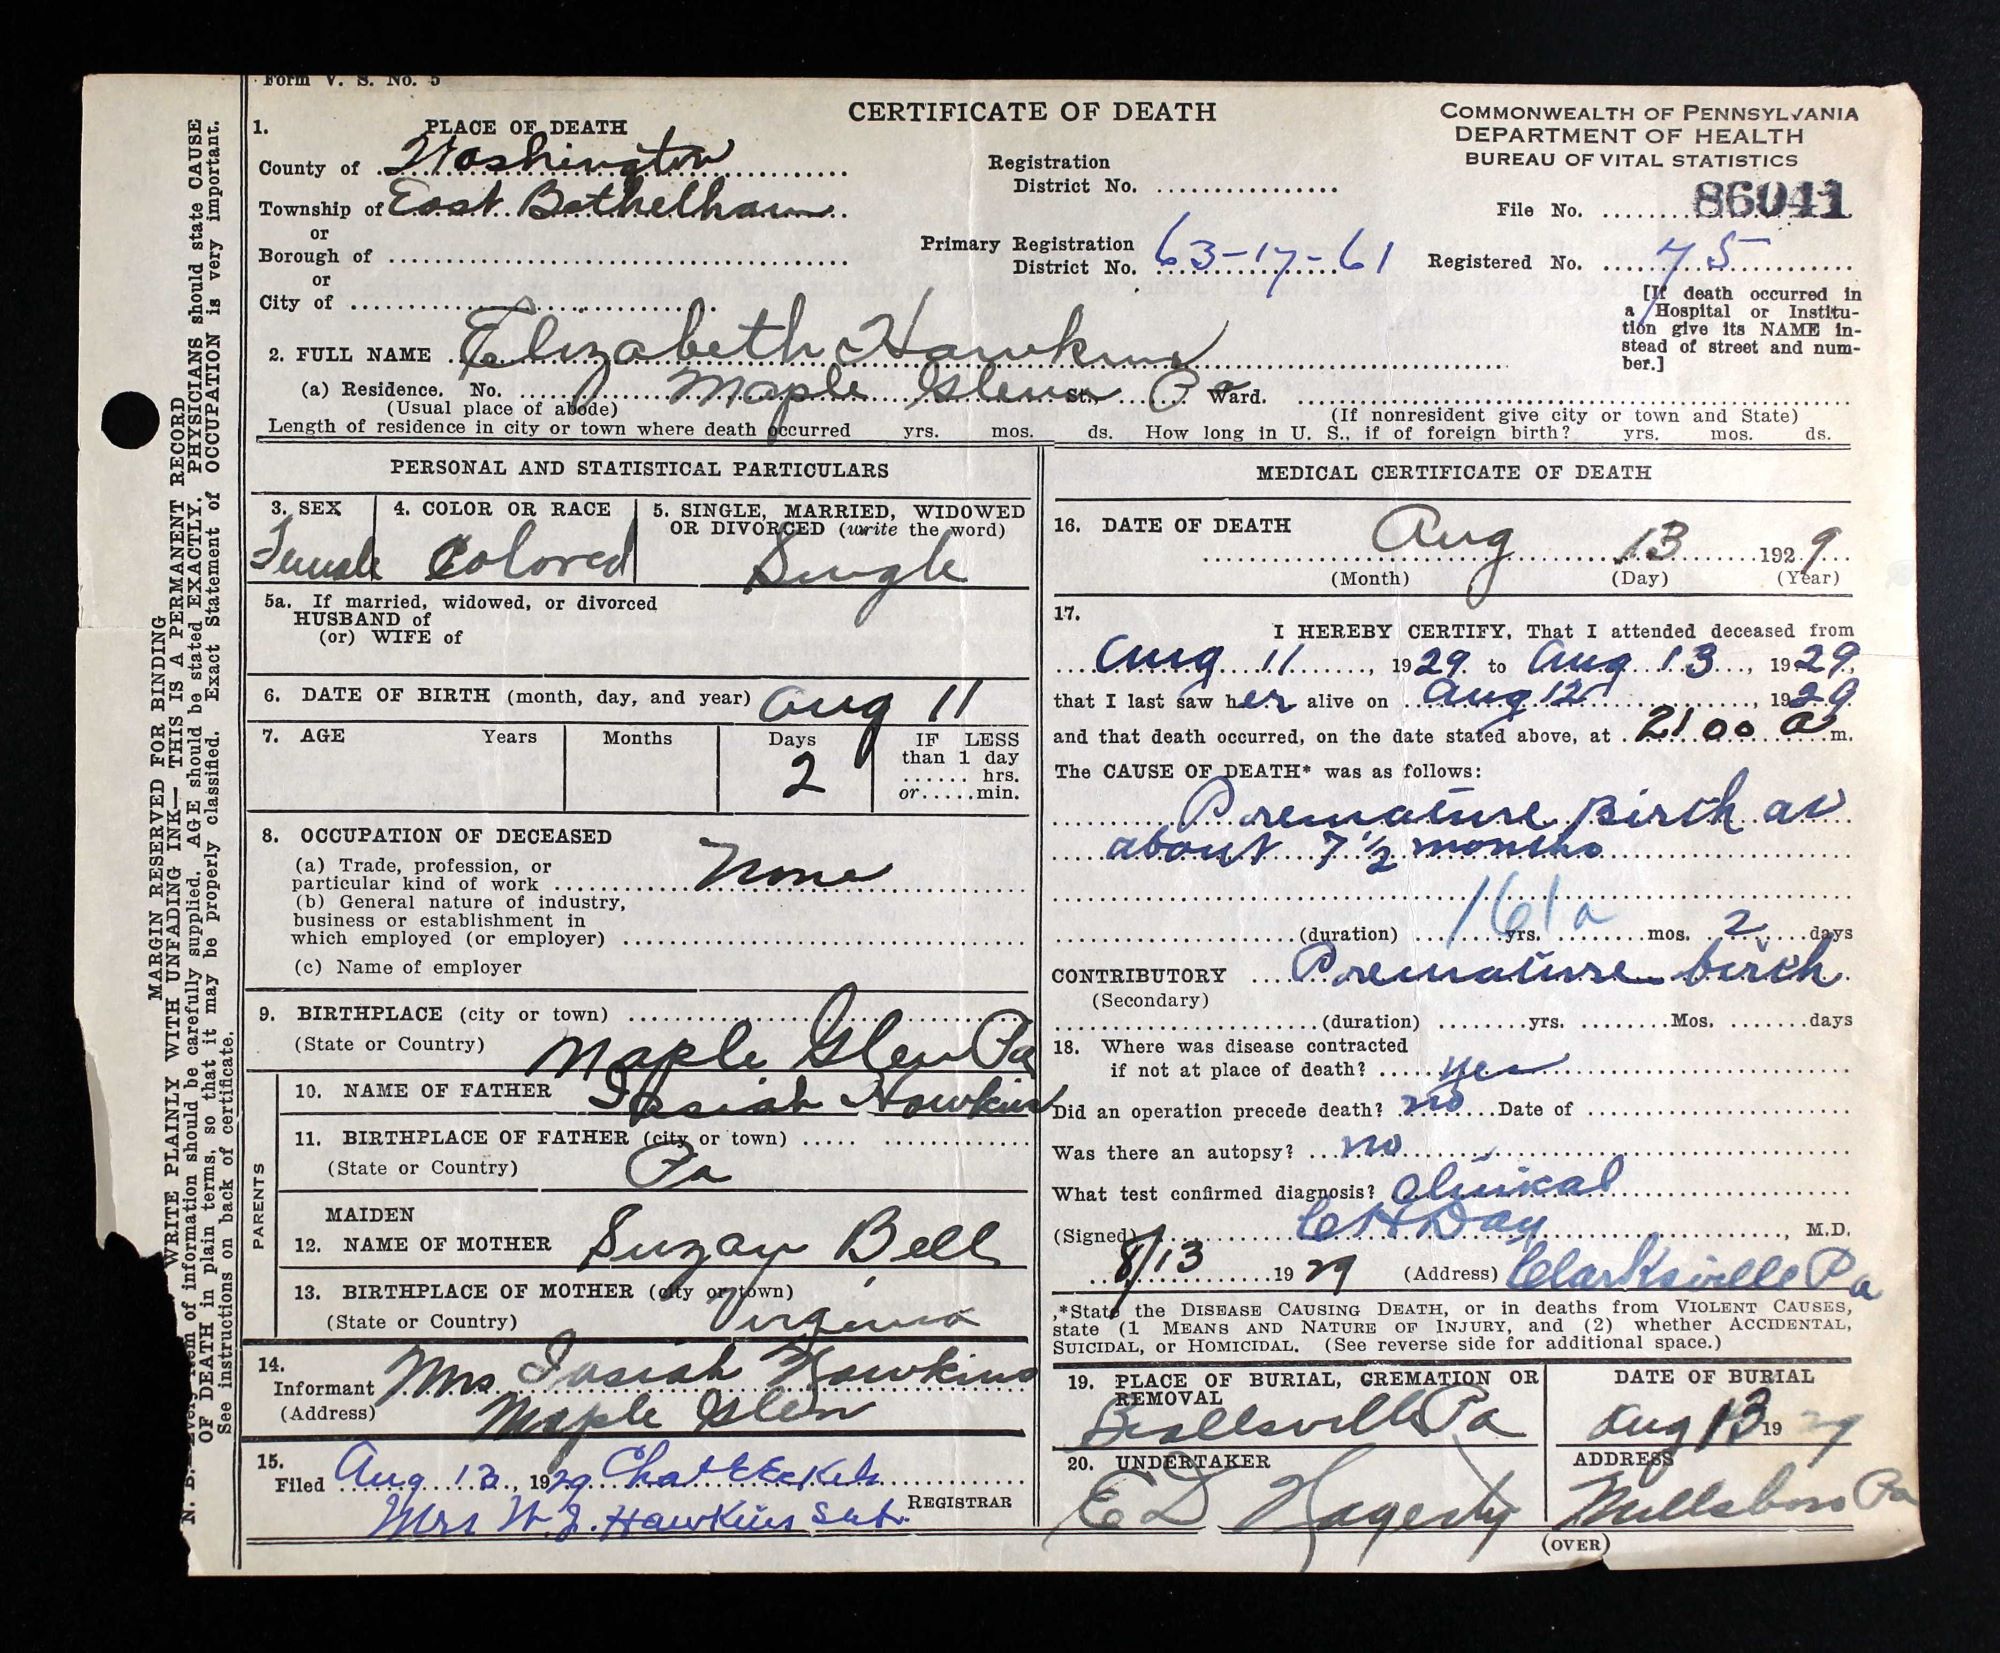 Form V. S. No. 5
CERTIFICATE OF DEATH
COMMONWEALTH OF PENNSYLVANIA
DEPARTMENT OF HEALTH
BUREAU OF VITAL STATISTICS
1. PLACE OF DEATH
County of Washington
Township of East Bethelham
or
Borough of
or
City of
Registration
District No.
Primary Registration
District No. 63-17-61
File No. 86041
Registered No. 75
[If death occurred in
a Hospital or Institu-
tion give its NAME in-
stead of street and num-
ber.]
2. FULL NAME Elizabeth Hawkins
(a) Residence. No. Maple Glenn St., Pa Ward.
(Usual place of abode) (If nonresident give city or town and State)
Length of residence in city or town where death occurred yrs. mos. ds. How long in U. S., if of foreign birth? yrs. mos. ds.
PERSONAL AND STATISTICAL PARTICULARS
3. SEX
Female
4. COLOR OR RACE
Colored
5. SINGLE, MARRIED, WIDOWED
OR DIVORCED (write the word)
Single
5a. If married, widowed, or divorced
HUSBAND of
(or) WIFE of
6. DATE OF BIRTH (month, day, and year) Aug 11
7. AGE Years Months Days IF LESS
than 1 day
hrs.
or min.
2
8. OCCUPATION OF DECEASED
(a) Trade, profession, or
particular kind of work None
(b) General nature of industry,
business or establishment in
which employed (or employer)
(c) Name of employer
9. BIRTHPLACE (city or town)
(State or Country) Maple Glen Pa
PARENTS
10. NAME OF FATHER Josiah Hawkins
11. BIRTHPLACE OF FATHER (city or town)
(State or Country) Pa
MAIDEN
12. NAME OF MOTHER Suzay Bell
13. BIRTHPLACE OF MOTHER (city or town)
(State or Country) Virginia
14.
Informant Mrs Josiah Hawkins
(Address) Maple Glen
15.
Filed Aug 13, 1929 Chas E Eckels
Mrs W. J. Hawkins Sub. REGISTRAR
MEDICAL CERTIFICATE OF DEATH
16. DATE OF DEATH
Aug 13 1929
(Month) (Day) (Year)
17.
I HEREBY CERTIFY, That I attended deceased from
Aug 11, 1929 to Aug 13, 1929,
that I last saw her alive on Aug 12, 1929
and that death occurred, on the date stated above, at 2:00 a m.
The CAUSE OF DEATH* was as follows:
Premature Birth at
about 7 1/2 months
161a
(duration) yrs. mos. 2 days
CONTRIBUTORY Premature birth
(Secondary)
(duration) yrs. Mos. days
18. Where was disease contracted
if not at place of death? yes
Did an operation precede death? no Date of
Was there an autopsy? no
What test confirmed diagnosis? Clinical
(Signed) C H Day, M.D.
8/13 1929 (Address) Clarksville Pa
*State the DISEASE CAUSING DEATH, or in deaths from VIOLENT CAUSES,
state (1 MEANS AND NATURE OF INJURY, and (2) whether ACCIDENTAL,
SUICIDAL, or HOMICIDAL. (See reverse side for additional space.)
19. PLACE OF BURIAL, CREMATION OR
REMOVAL
Beallsville Pa
DATE OF BURIAL
Aug 13 1929
20. UNDERTAKER
E D Hagerty
ADDRESS
Millsboro Pa
(OVER)
MARGIN RESERVED FOR BINDING
WRITE PLAINLY WITH UNFADING INK—THIS IS A PERMANENT RECORD
N. B.—Every item of information should be carefully supplied. AGE should be stated EXACTLY. PHYSICIANS should state CAUSE
OF DEATH in plain terms, so that it may be properly classified. Exact Statement of OCCUPATION is very important.
See instructions on back of certificate.